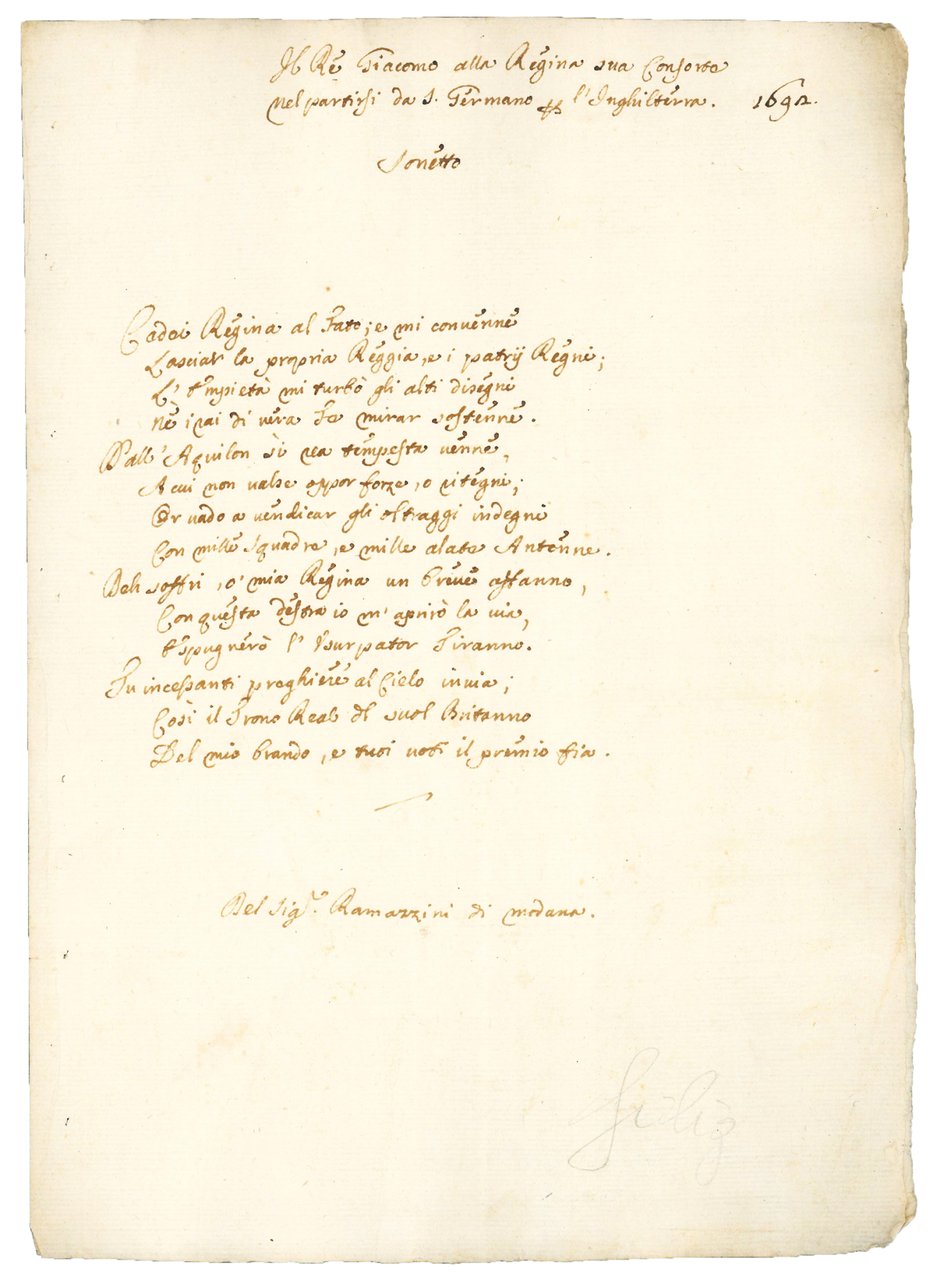 Il Rè Giacomo alla Regina sua Consorte
nel partirsi da S. Germano l'Inghilterra. 1692.
Sonetto
Cadei Regina al Fato; e mi convenne
Lasciar la propria Reggia, e i patrij Regni;
L'Empietà mi turbò gli alti disegni
Nè i rai di vera Fe mirar sostenne.
Dall'Aquilon sì rea tempesta venne,
A cui non valse oppor forze, o ritegni;
Or vado a vendicar gli oltraggi indegni
Con mille squadre, e mille alate Antenne.
Deh soffri, o' mia Regina un breve affanno,
Con questa destra io m'aprirò la via,
Espugnerò l'Usurpator Tiranno.
Tu incessanti preghiere al Cielo invia;
Così il Trono Real del suol Britanno
Del mio brando, e tuoi voti il premio fia.
Del Sig.r Ramazzini di Modana.